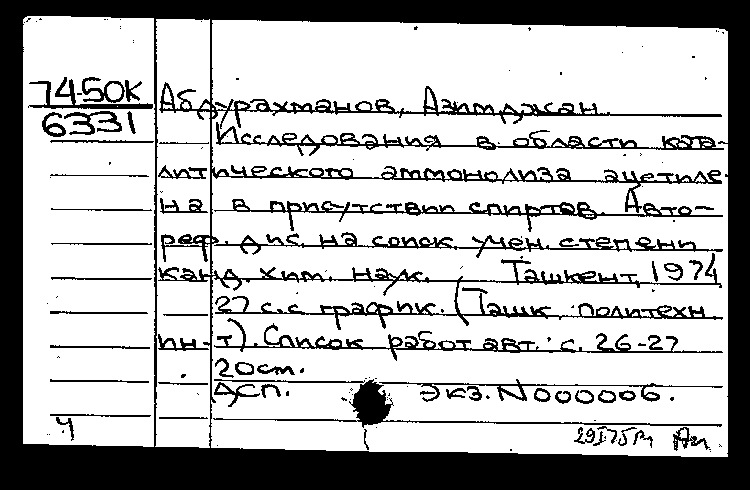 74-50К
6331
Абдурахманов, Азимджан.
Исследования в области ката-
литического аммонолиза ацетиле-
на в присутствии спиртов. Авто-
реф. дис. на соиск. учен. степени
канд. хим. наук. Ташкент, 1974
27 с.с график. (Ташк. политехн.
ин-т). Список работ авт.: с. 26-27
20см.
ДСП. Экз. N000006.
Ч